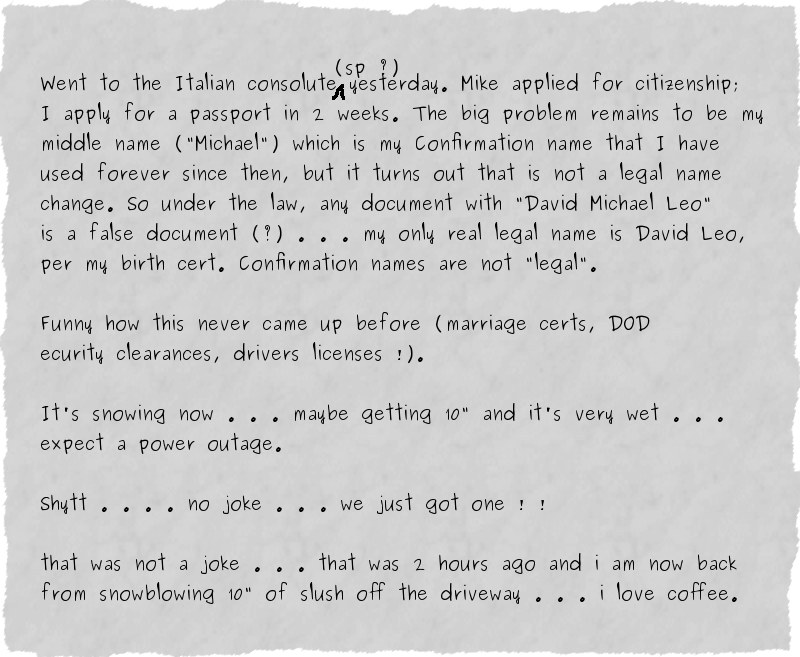 (sp ?)
Went to the Italian consolute yesterday. Mike applied for citizenship;
I apply for a passport in 2 weeks. The big problem remains to be my
middle name ("Michael") which is my Confirmation name that I have
used forever since then, but it turns out that is not a legal name
change. So under the law, any document with "David Michael Leo"
is a false document (?) . . . my only real legal name is David Leo,
per my birth cert. Confirmation names are not "legal".
Funny how this never came up before (marriage certs, DOD
ecurity clearances, drivers licenses !).
It's snowing now . . . maybe getting 10" and it's very wet . . .
expect a power outage.
Shytt . . . . no joke . . . we just got one ! !
that was not a joke . . . that was 2 hours ago and i am now back
from snowblowing 10" of slush off the driveway . . . i love coffee.